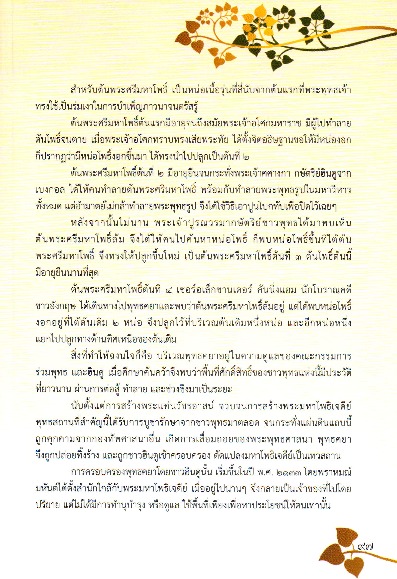 สำหรับต้นพระศรีมหาโพธิ์ เป็นหน่อเนื้อรุ่นที่สี่นับจากต้นแรกที่พระพุทธเจ้า
ทรงใช้เป็นร่มเงาในการบำเพ็ญภาวนาจนตรัสรู้
ต้นพระศรีมหาโพธิ์ต้นแรกมีอายุจนถึงสมัยพระเจ้าอโศกมหาราช มีผู้ไปทำลาย
ต้นโพธิ์จนตาย เมื่อพระเจ้าอโศกทราบทรงเสียพระทัย ได้ตั้งจิตอธิษฐานขอให้มีหน่องอก
ก็ปรากฏว่ามีหน่อโพธิ์งอกขึ้นมา ได้ทรงนำไปปลูกเป็นต้นที่ ๒
ต้นพระศรีมหาโพธิ์ต้นที่ ๒ มีอายุยืนจนกระทั่งพระเจ้าศศางกา กษัตริย์ฮินดูจาก
เบงกอล ได้ให้คนทำลายต้นพระศรีมหาโพธิ์ พร้อมกับทำลายพระพุทธรูปในมหาวิหาร
ทั้งหมด แต่อำมาตย์ไม่กล้าทำลายพระพุทธรูป จึงได้ใช้วิธีเอาปูนโบกทับเพื่อปิดไว้เฉยๆ
หลังจากนั้นไม่นาน พระเจ้าปูรณวรมากษัตริย์ชาวพุทธได้มาพบเห็น
ต้นพระศรีมหาโพธิ์ล้ม จึงได้ให้คนไปค้นหาหน่อโพธิ์ ก็พบหน่อโพธิ์ขึ้นที่ใต้ต้น
พระศรีมหาโพธิ์ จึงทรงให้ปลูกขึ้นใหม่ เป็นต้นพระศรีมหาโพธิ์ต้นที่ ๓ ต้นโพธิ์ต้นนี้
มีอายุยืนนานที่สุด
ต้นพระศรีมหาโพธิ์ต้นที่ ๔ เซอร์อเล็กซานเดอร์ คันนิ่งแฮม นักโบราณคดี
ชาวอังกฤษ ได้เดินทางไปพุทธคยาและพบว่าต้นพระศรีมหาโพธิ์ล้มอยู่ แต่ได้พบหน่อโพธิ์
งอกอยู่ที่ใต้ต้นเดิม ๒ หน่อ จึงปลูกไว้ที่บริเวณต้นเดิมหนึ่งหน่อ และอีกหน่อหนึ่ง
แยกไปปลูกทางด้านทิศเหนือของต้นเดิม
สิ่งที่ทำให้ฉงนใจก็คือ บริเวณพุทธคยาอยู่ในความดูแลของคณะกรรมการ
ร่วมพุทธ และฮินดู เมื่อศึกษาค้นคว้าจึงพบว่าพื้นที่ศักดิ์สิทธิ์ของชาวพุทธแห่งนี้มีประวัติ
ที่ยาวนาน ผ่านการต่อสู้ ทำลาย และช่วงชิงมาเป็นระยะ
นับตั้งแต่การสร้างพระแท่นวัชรอาสน์ จวบจนการสร้างพระมหาโพธิเจดีย์
พุทธสถานที่สำคัญนี้ได้รับการบูชารักษาจากชาวพุทธมาตลอด จนกระทั่งแผ่นดินแถบนี้
ถูกคุกคามจากกองทัพศาสนาอื่น เกิดการเสื่อมถอยของพระพุทธศาสนา พุทธคยา
จึงถูกปล่อยทิ้งร้าง และถูกชาวฮินดูเข้าครอบครอง ดัดแปลงมหาโพธิเจดีย์เป็นเทวสถาน
การครอบครองพุทธคยาโดยชาวฮินดูนั้น เริ่มขึ้นในปี พ.ศ. ๒๑๓๓ โดยพราหมณ์
มหันต์ได้ตั้งสำนักใกล้กับพระมหาโพธิเจดีย์ เมื่ออยู่ไปนานๆ จึงกลายเป็นเจ้าของที่ไปโดย
ปริยาย แต่ไม่ได้มีการทำนุบำรุง หรือดูแล ใช้พื้นที่เพียงเพื่อหาประโยชน์ให้ตนเท่านั้น